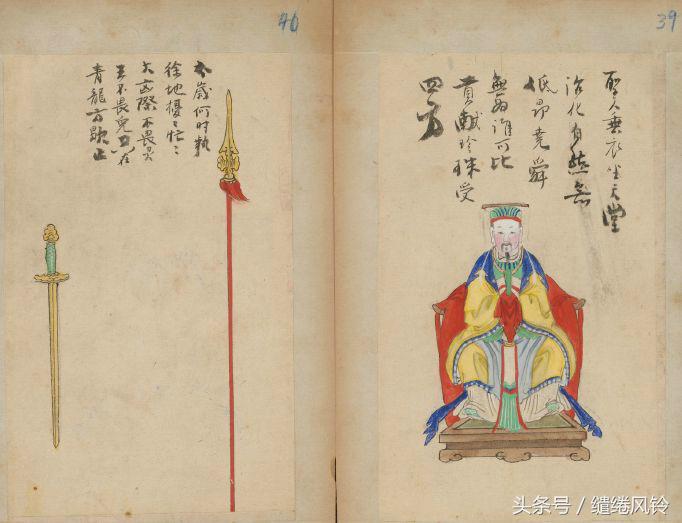 39
聖人垂衣坐天堂
治化自然無
低昂堯舜
無為誰可比
貢獻珍珠受
四方
46
歲何时執
徐地擾々忙々
際不畏
不畏
青龍方歇止
头条号 / 缱绻风铃